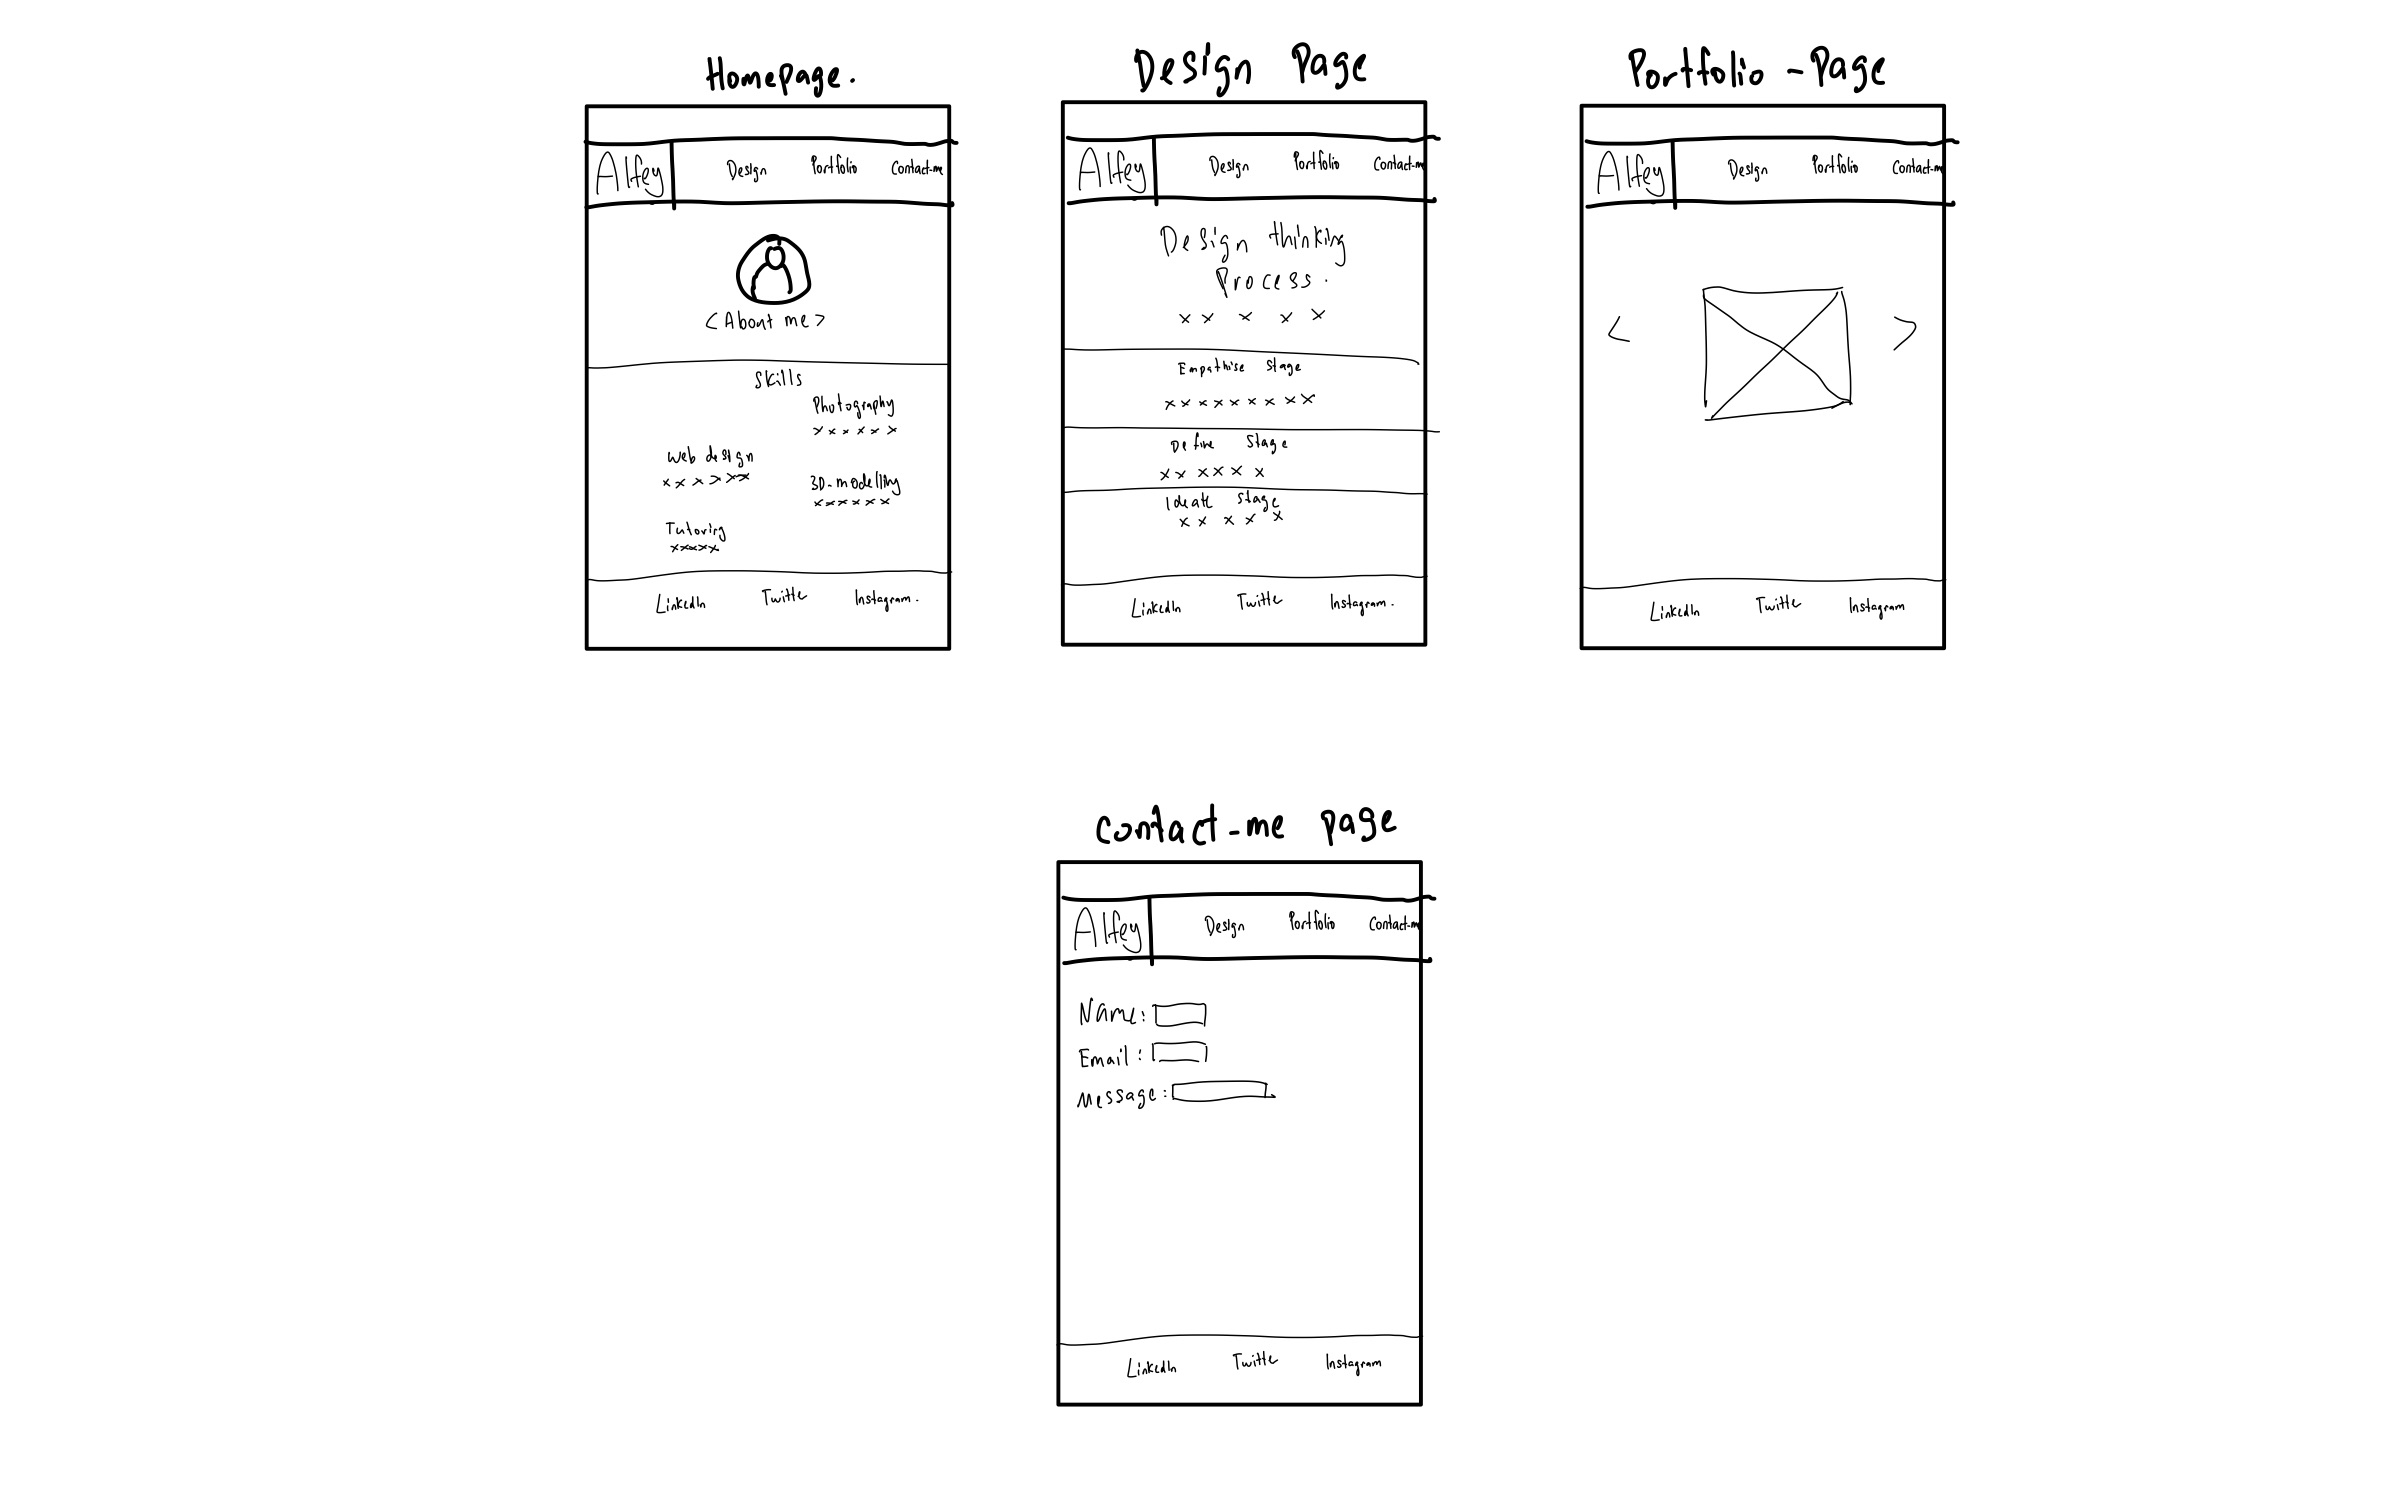 Homepage.
Alfey Design Portfolio Contact-me
<About me>
Skills
Photography
x x x x x x
Web design
x x x x x x
3D-modelling
x x x x x x
Tutoring
x x x x x
LinkedIn Twitte Instagram.
Design Page
Alfey Design Portfolio Contact-me
Design thinking
Process.
x x x x x
Empathise Stage
x x x x x x x x x
Define Stage
x x x x x x
Ideate Stage
x x x x x
LinkedIn Twitte Instagram.
Portfolio - Page
Alfey Design Portfolio Contact-me
< >
LinkedIn Twitte Instagram
contact-me page
Alfey Design Portfolio Contact-me
Name:
Email:
Message:
LinkedIn Twitte Instagram